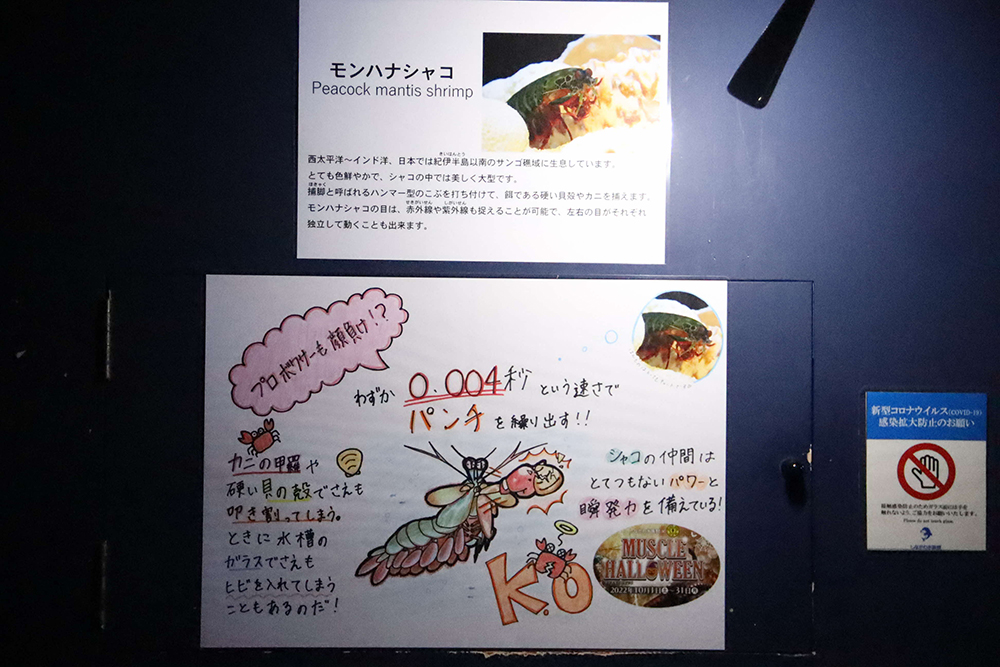 モンハナシャコ
Peacock mantis shrimp
西太平洋～インド洋、日本では紀伊半島以南のサンゴ礁域に生息しています。
とても色鮮やかで、シャコの中では美しく大型です。
捕脚と呼ばれるハンマー型のこぶを打ち付けて、餌である硬い貝殻やカニを捕えます。
モンハナシャコの目は、赤外線や紫外線も捉えることが可能で、左右の目がそれぞれ
独立して動くことも出来ます。
プロボクサーも顔負け!?
わずか 0.004秒 という速さで
パンチを繰り出す!!
カニの甲羅や
硬い貝の殻でさえも
叩き割ってしまう。
ときに水槽の
ガラスでさえも
ヒビを入れてしまう
こともあるのだ!
シャコの仲間は
とてつもないパワーと
瞬発力を備えている!
K.O
MUSCLE
HALLOWEEN
2022年10月1日(土)～31日(月)
新型コロナウイルス(COVID-19)
感染拡大防止のお願い
接触感染防止のためガラス面は手を
触れないよう、ご協力をお願いいたします。
Please do not touch glass.